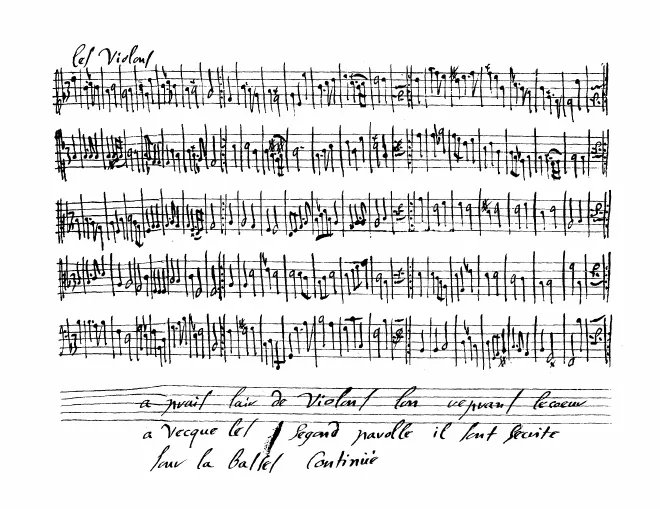 les Violons
a prais lair de Violons lon reprans le coeur
a Vecque les Segond parolle il sont Secrite
sour la basses Continüe